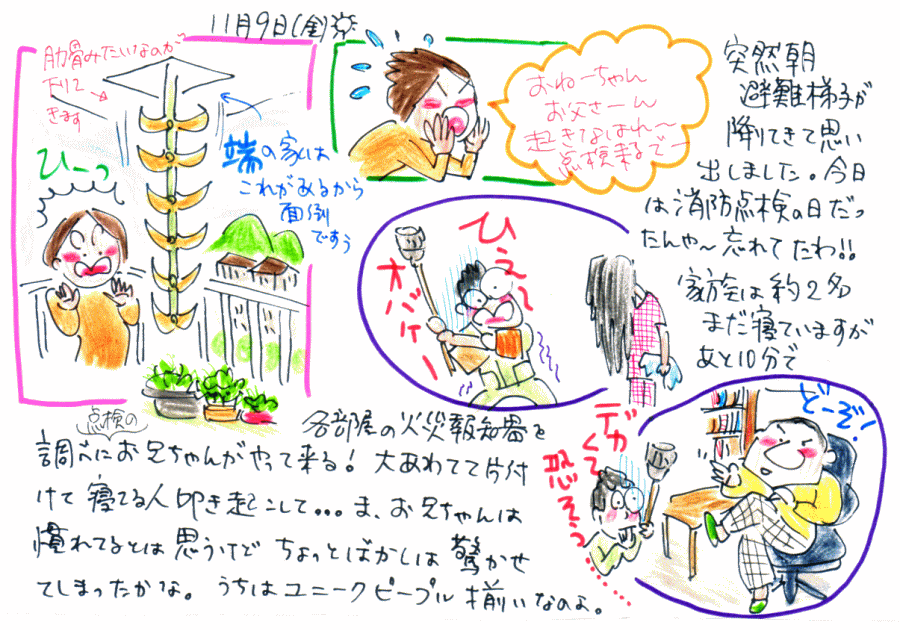 11月9日(金)
肋骨みたいなのが
下りて
きます
ひーっ
端の家は
これがあるから
面倒
ですぅ
おねーちゃん
お父さーん
起きなはれ〜
点検来るでー
突然朝
避難梯子が
降りてきて思い
出しました。今日
は消防点検の日だっ
たんや〜忘れてたわ!!
家族は約2名
まだ寝ていますが
あと10分で
ひぇ〜
オバケー
各部屋の火災報知器を
点検の
調べにお兄ちゃんがやって来る!大あわてで片付
けて寝てる人叩き起こして...ま、お兄ちゃんは
慣れてるとは思うけどちょっとばかしは驚かせ
てしまったかな。うちはユニークピープル揃いなのよ。
デカ
くて
恐そう......
どーぞ!